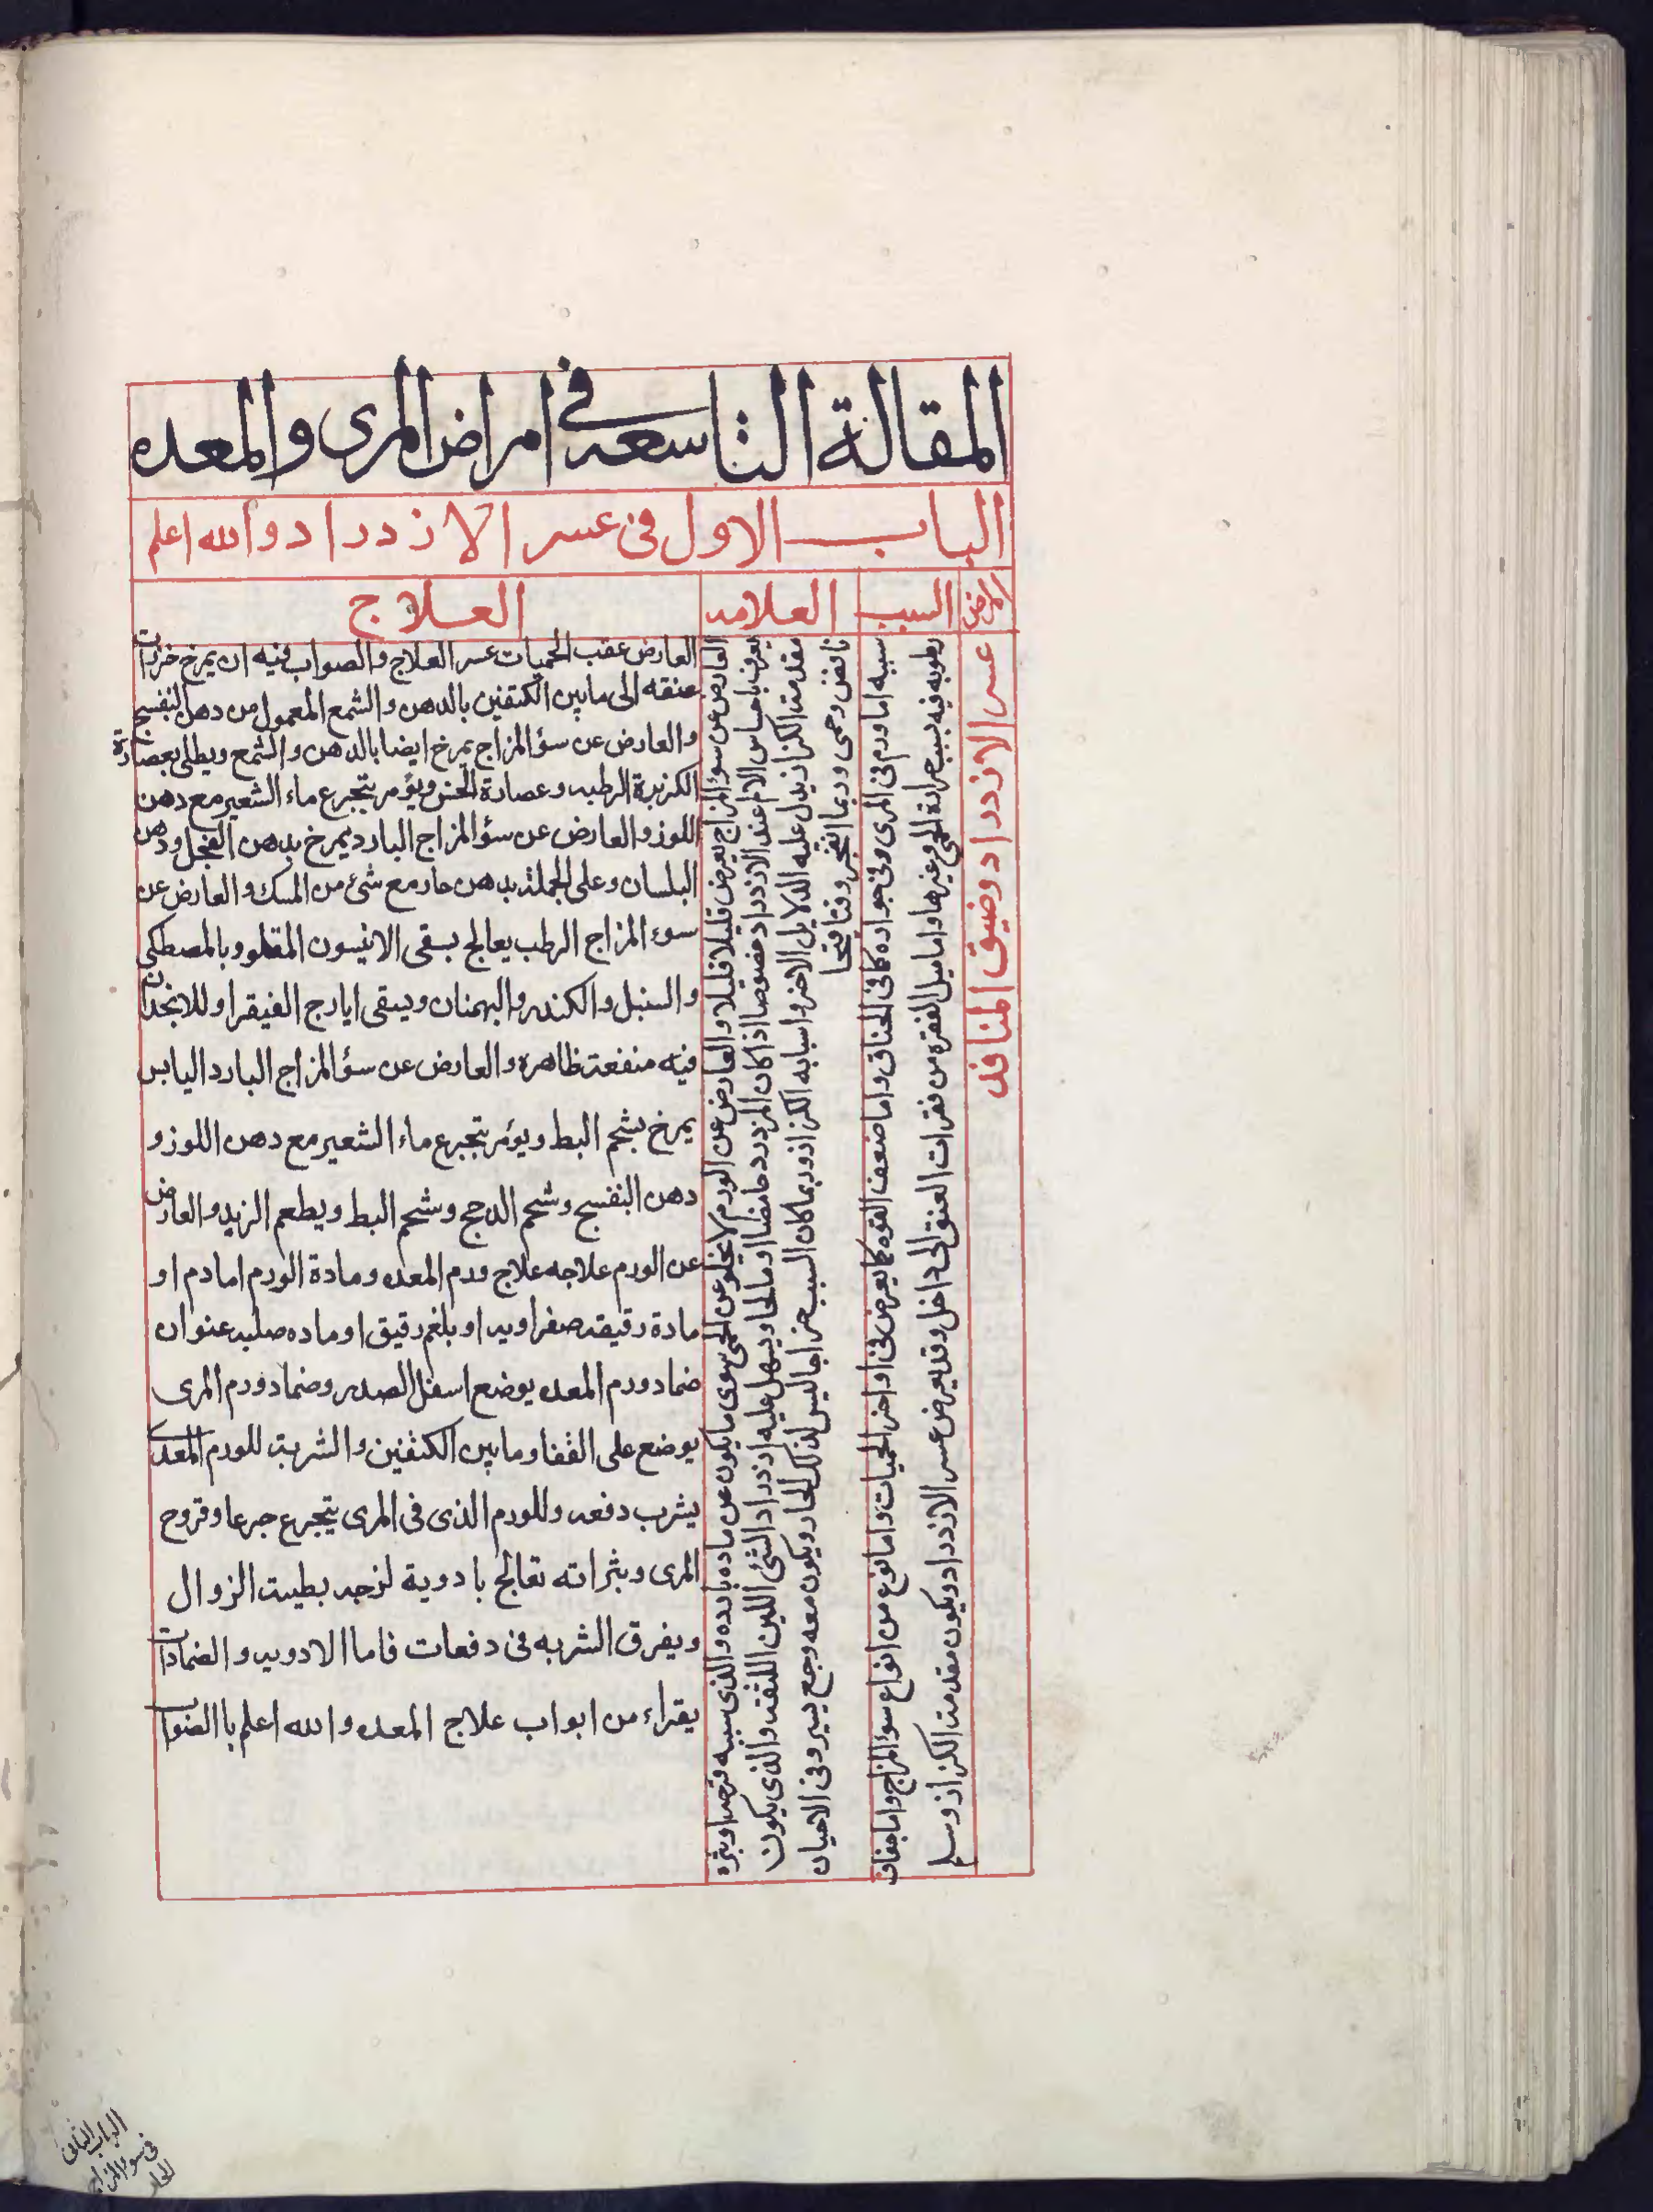 المقالة التاسعه في امراض المرى والمعده
الباب الاول فى عسر الازدراد والله اعلم
المرض
السبب
العلامه
العلاج
عسر الازدراد وضيق المنافذ
سببه اما ورم فى المرى وفى جواره كما فى الخناق واما ضعف القوه كما يعرض فى اواخر الحميات واما نوع من انواع سؤ المزاج واما جفاف
رطوبه فيه بسبب حرارة الحمى وغيرها واما ميل الفقره من فقرات العنق الى داخل وقد يعرض عسر الازدراد ويكون مقدمت الكزاز
العارض عن سؤ المزاج يعرض قليلا قليلا والعارض عن الورم لا يخلو عن الحمى سوى ما يكون عن ماده بارده والذى سببه قرحه او بثره
يعرف باحساس الالم عند الازدراد خصوصا اذا كان المزدرد حامضا او مالحا ويسهل عليه ازدراد الشئ اللين اللثقه والذى يكون
مقدمت الكزاز يدل عليه الدلايل الاخر واسبابه الكزاز وربما كان السبب خراجا ليس لذلك الحار ويكون معه وجع يسير وفى الاحيان
نافض وحمى وربما انفجر وقيا قيحا
العارض عقب الحميات عسر العلاج والصواب فيه ان يمرخ خرزات
عنقه الى مابين الكتفين بالدهن والشمع المعمول من دهن البنفسج
والعارض عن سؤ المزاج يمرخ ايضا بالدهن والشمع ويطلى بعصارة
الكزبرة الرطبه وعصارة الخس ويؤمر بتجرع ماء الشعير مع دهن
اللوز والعارض عن سؤ المزاج البارد يمرخ بدهن الفجل ودهن
البلسان وعلى الجملة بدهن حار مع شئ من المسك والعارض عن
سوء المزاج الرطب يعالج بسقى الانيسون المقلو وبالمصطكى
والسنبل والكندر والبهمنان ويسقى ايارج الفيقرا وللانجدان
فيه منفعة ظاهره والعارض عن سؤ المزاج البارد اليابس
يمرخ بشحم البط ويؤمر بتجرع ماء الشعير مع دهن اللوز و
دهن البنفسج وشحم الدجج وشحم البط ويطعم الزبد والعارض
عن الورم علاجه علاج ورم المعده ومادة الورم اما دم او
مادة رقيقه صفراويه او بلغم رقيق او ماده صلبه عنوان
ضماد ورم المعده يوضع اسفل الصدر وضماد ورم المرى
يوضع على القفا وما بين الكتفين والشربت للورم المعدى
يشرب دفعه وللورم الذى فى المرى يتجرع جرعا وقروح
المرى وبثراته تعالج بادوية لزجه بطيت الزوال
ويفرق الشربه فى دفعات فاما الادويه والضمادات
يقراء من ابواب علاج المعده والله اعلم باالصواب
الباب الثانى
فى سوء المزاج
الحار